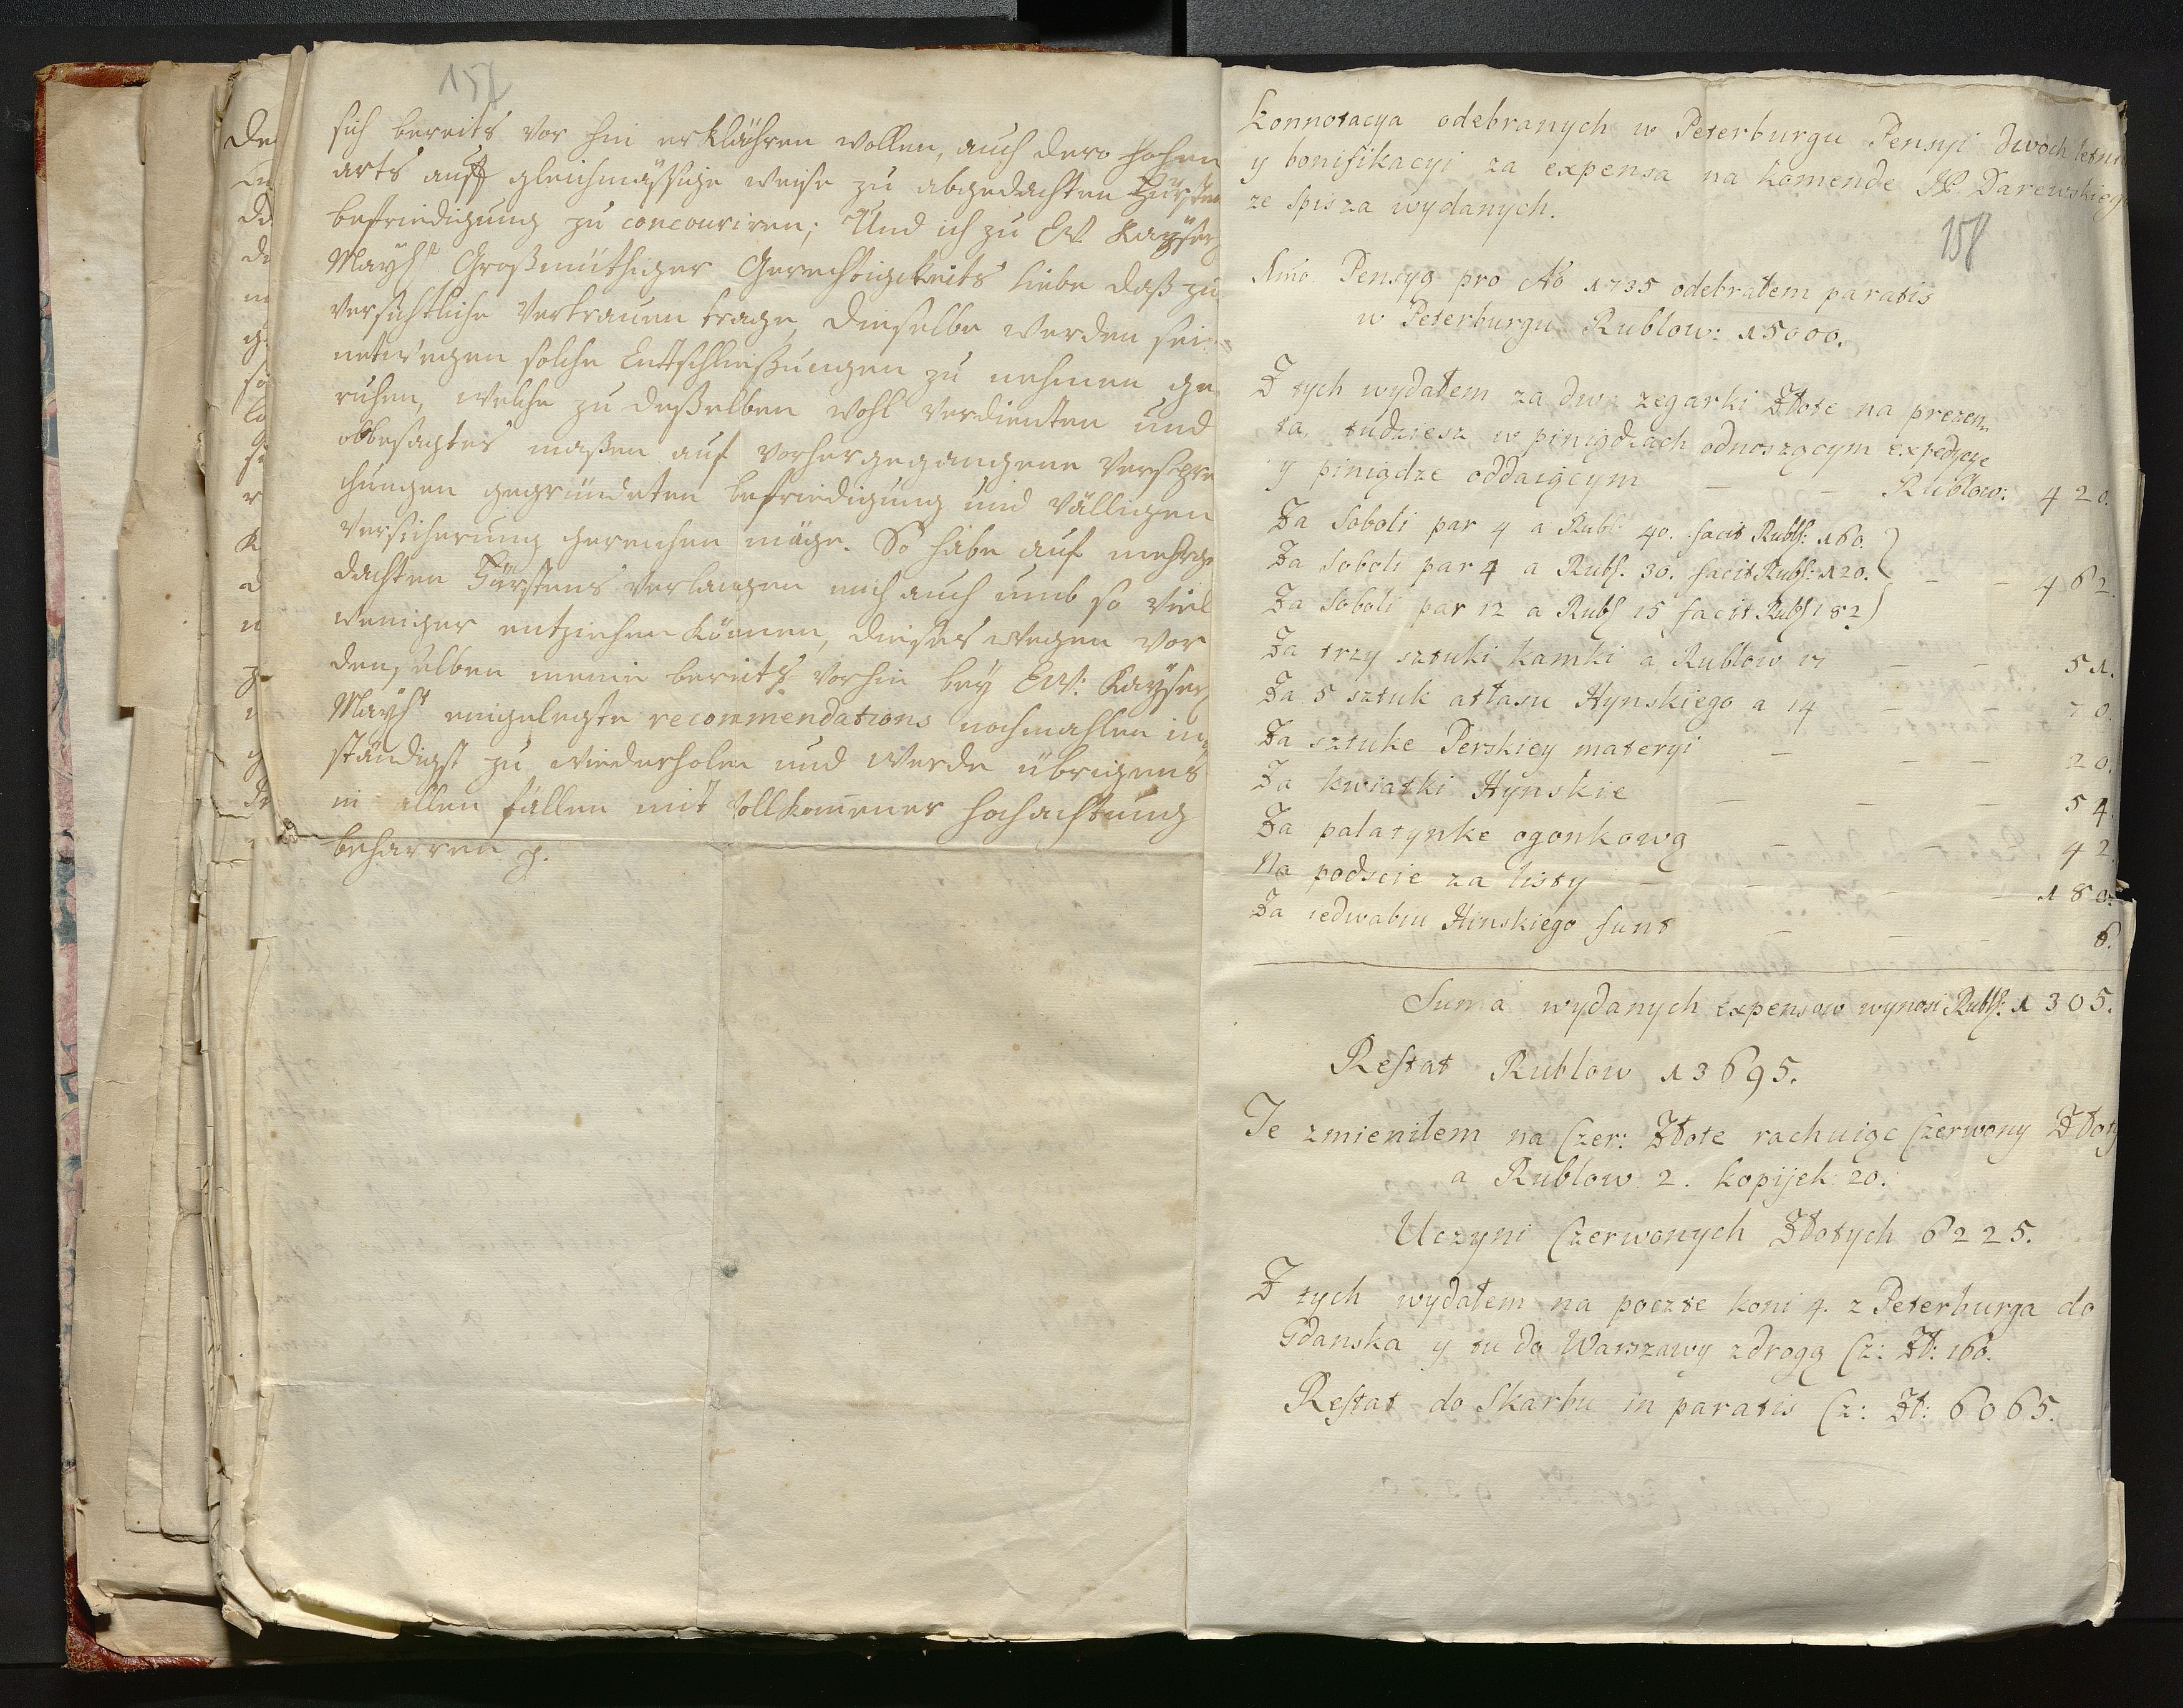 157
sich bereits vor hin erklähren wollen, auch dero hohen
orts auff gleichmässige weise zu abgedachten Fürsten
befriedigung zu concouriren; Und ich zu Ew. Kayser
Mayst Großmüthiger Gerechtigkeits liebe daß zu
versichtliche Vertrauen trage, dieselbe werden sei=
netwegen solche Entschließungen zu nehmen ge
ruhen, welche zu deßelben wohl verdienten und
obbesagter maßen auf vorhergegangene Verspre
chungen gegründeten befriedigung und völligen
versicherung gereichen möge. So habe auf mehrge
dachten Fürstens verlangen mich auch umb so viel
weniger entziehen können, dieses wegen vor
denselben meine bereits vorhin bey Ew: Kayser
Mayst eingelegte recommendations nochmahlen in
ständigst zu wiederholen und werde übrigens
in allen fällen mit vollkomener hochachtung
beharren p.
Konnotacya odebranych w Peterburgu Pensyi dwoch letni
y bonifikacyi za expensa na komende JP. Darewskieg
ze spisza wydanych.
158
1mo Pensyą pro Ao 1735 odebrałem paratis
w Peterburgu Rublow: 15000.
Z tych wydałem za dwa zegarki Złote na prezen
ta, tudziesz w pinigdzach odnoszącym expedycye
y pinigdze oddaigcym – – Rublow: 420.
Za Soboli par 4 a Rubl 40. facit Rubl: 160.
Za Soboli par 4 a Rubl. 30. facit Rubl: 120. – – 462.
Za Soboli par 12 a Rubl 15 facit Rubl 182
Za trzy sztuki kamki a Rublow 17 – – 51.
Za 5 sztuk atłasu Hynskiego a 14 – – 70.
Za sztuke Perskiey materyi – – – 20.
Za kwiatki Hynskie – – – 54.
Za palatynke ogonkową – – – 42.
Na podscie za listy – – – – 180.
Za iedwabiu Hinskiego funt – – – 6.
Suma wydanych expensow wynosi Rubl: 1305.
Restat Rublow 13695.
Te zmieniłem na Czer: Złote rachuigc Czerwony Złoty
a Rublow 2. kopijek 20.
Uczyni Czerwonych Złotych 6225.
Z tych wydałem na poczte koni 4. z Peterburga do
Gdanska y tu do Warszawy zdrogą Cz: Zł: 160.
Restat do Skarbu in paratis Cz: Zł: 6065.